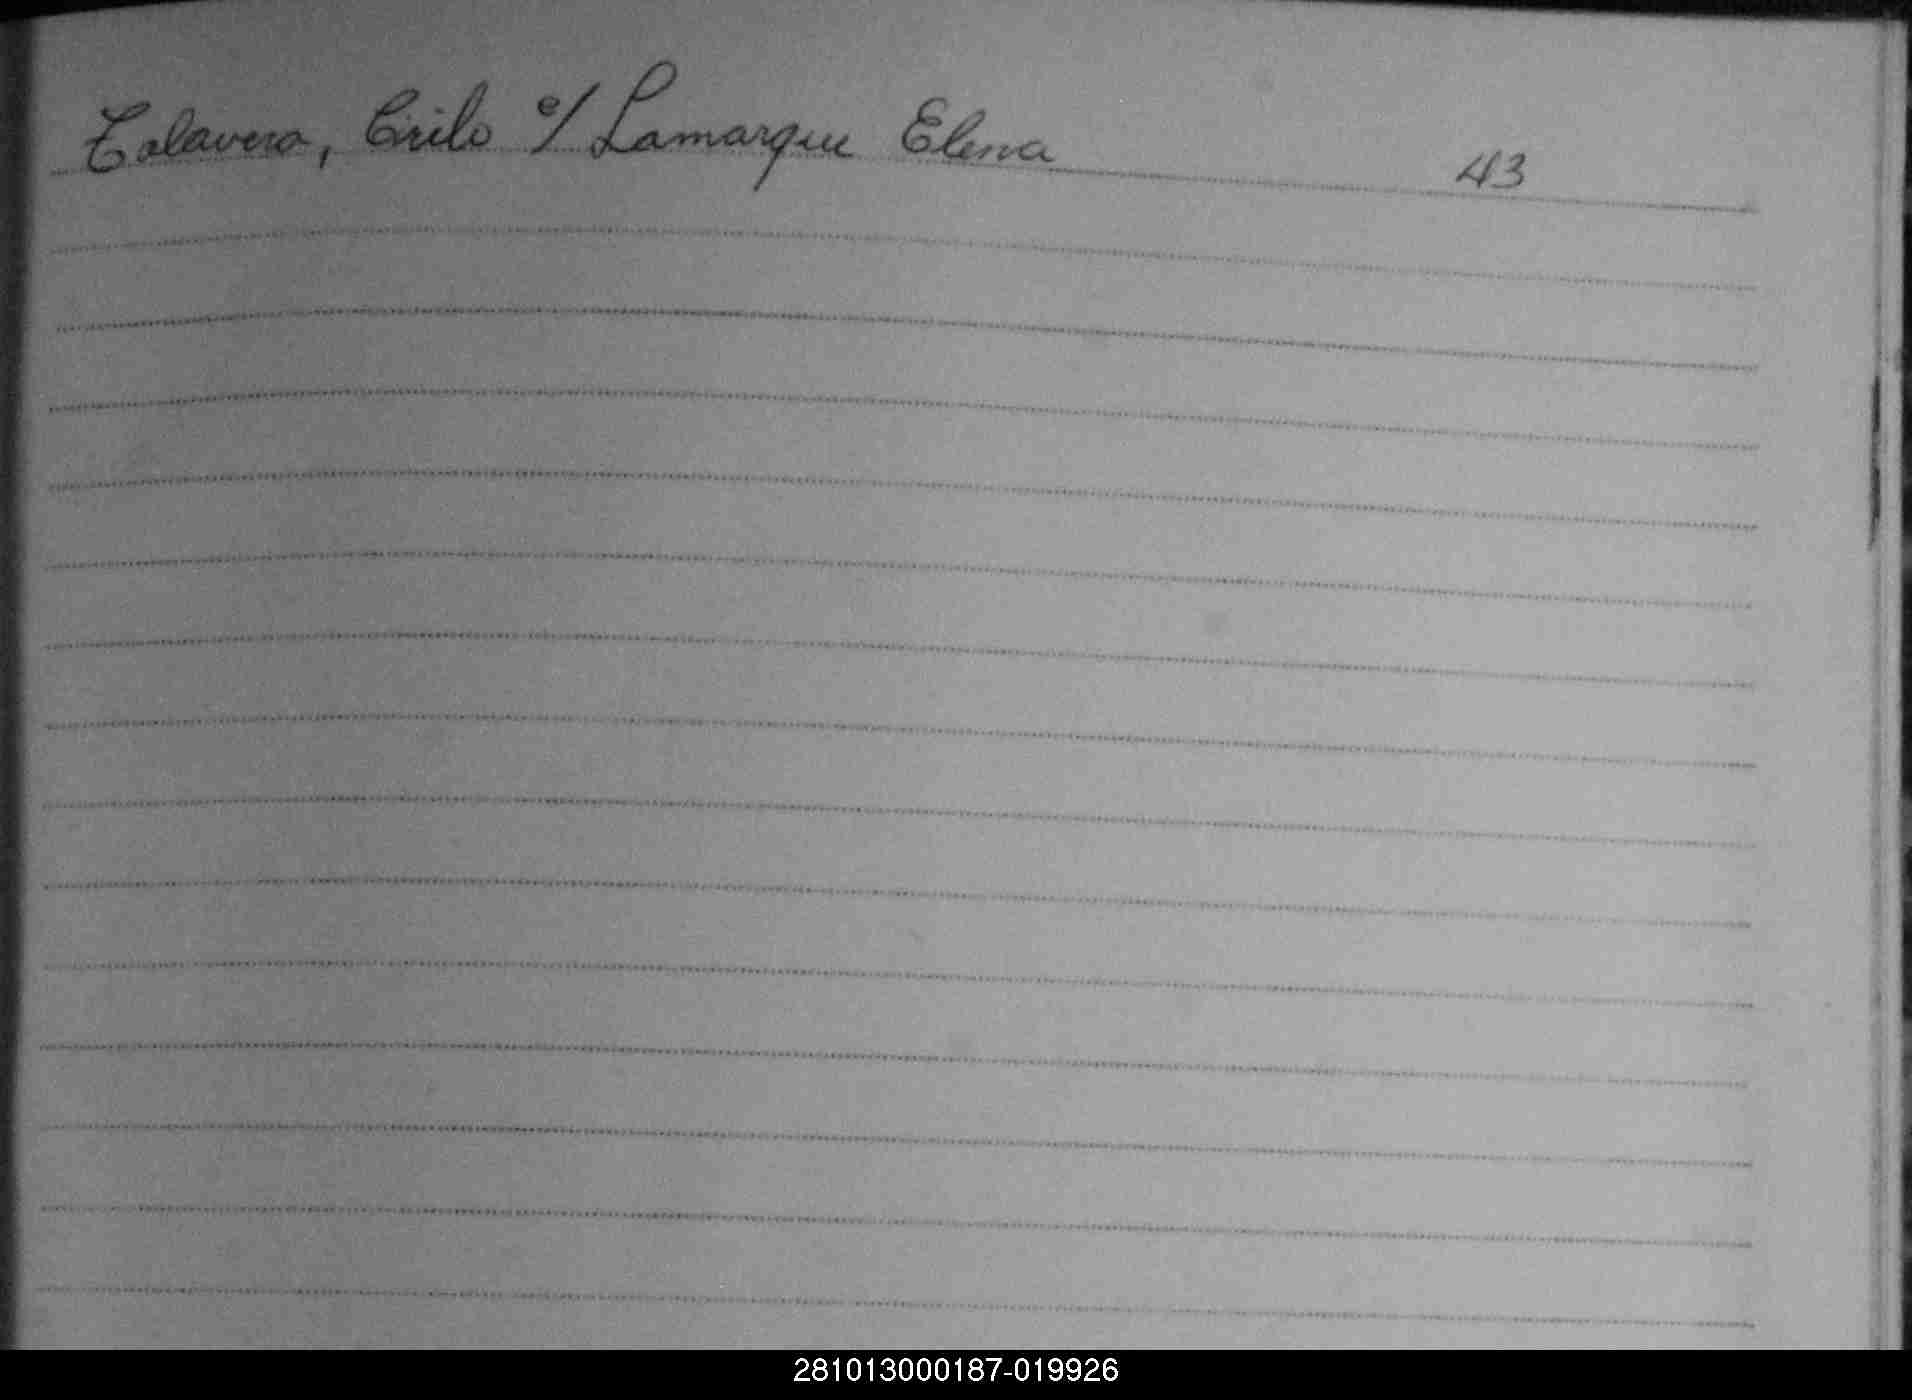 Talavera, Cirilo c/ Lamarque Elena 43
281013000187-019926